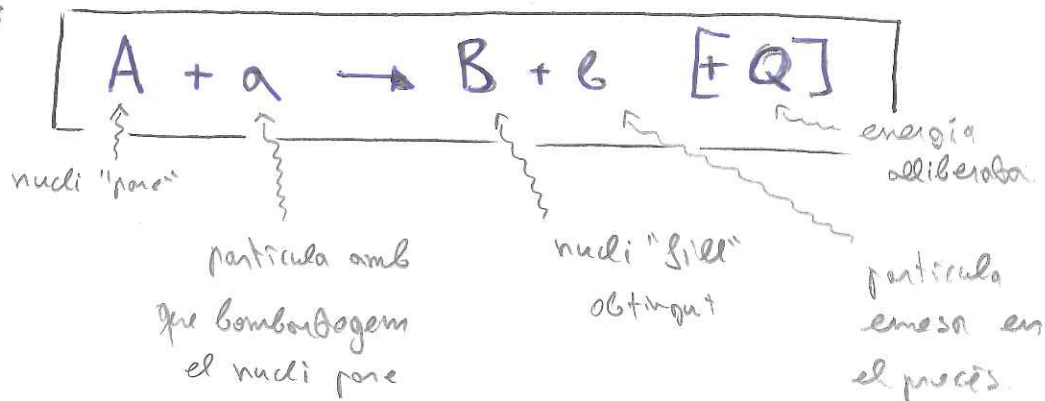 A + a → B + b [+ Q]
nucli "pare"
partícula amb
que bombardegem
el nucli pare
nucli "fill"
obtingut
partícula
emesa en
el procés.
energía
alliberada.